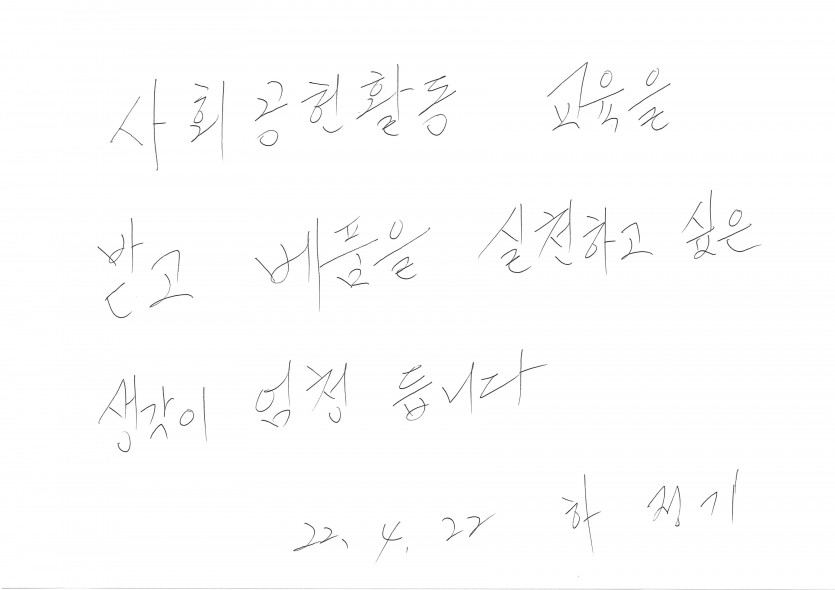 사회공헌활동 교육을
받고 베품을 실천하고 싶은
생각이 엄청 듭니다
22. 4. 22 하 정기